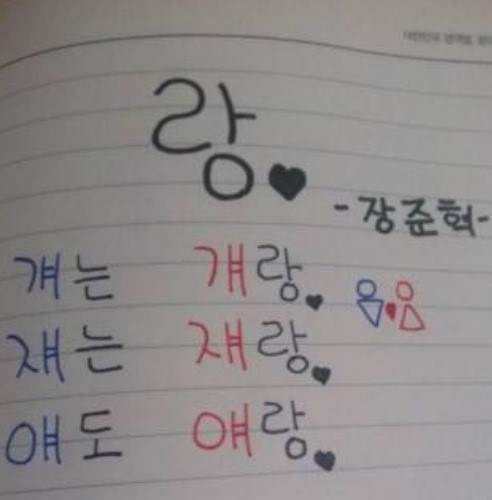 랑♥
-장준혁-
걔는 걔랑♥
쟤는 쟤랑♥
얘도 얘랑♥